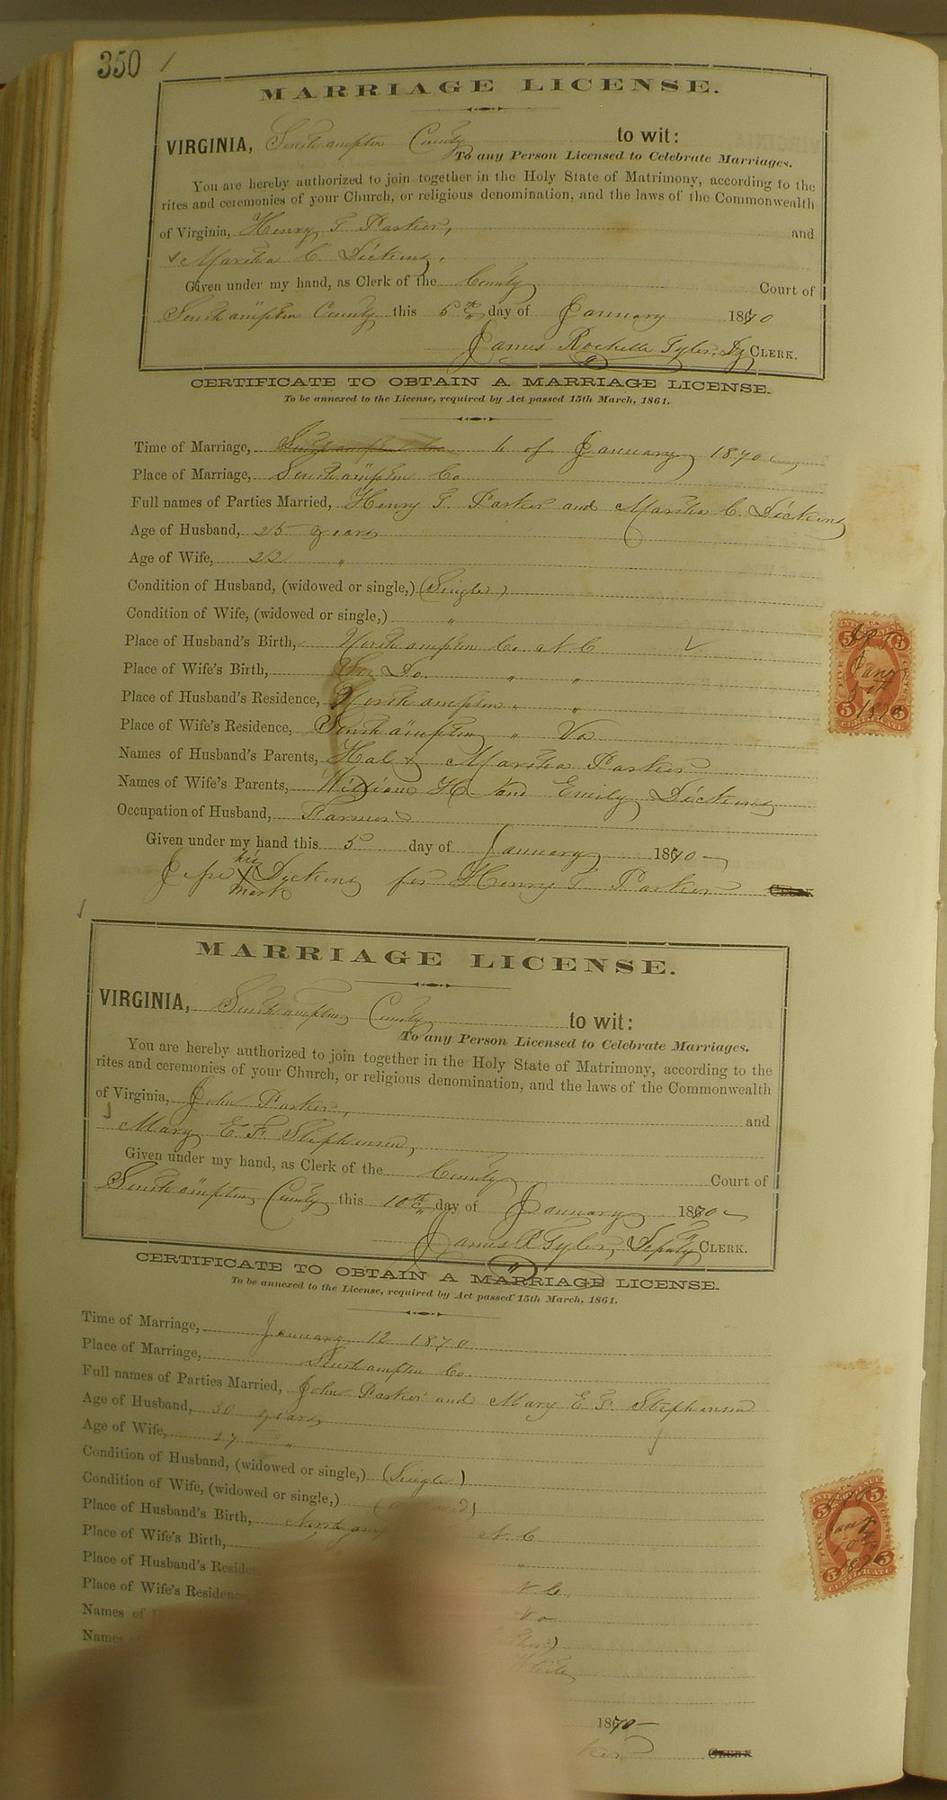 350
MARRIAGE LICENSE.
VIRGINIA, Southampton County to wit:
To any Person Licensed to Celebrate Marriages.
You are hereby authorized to join together in the Holy State of Matrimony, according to the
rites and ceremonies of your Church, or religious denomination, and the laws of the Commonwealth
of Virginia, Henry T. Parker, and
Martha C. Dickens,
Given under my hand, as Clerk of the County Court of
Southampton County this 5th day of January 1870
James Rochelle Tyler, Dy CLERK.
CERTIFICATE TO OBTAIN A MARRIAGE LICENSE.
To be annexed to the License, required by Act passed 15th March, 1861.
Time of Marriage, 6 of January 1870
Place of Marriage, Southampton Co
Full names of Parties Married, Henry T. Parker and Martha C. Dickens
Age of Husband, 25 years
Age of Wife, 22 "
Condition of Husband, (widowed or single,) (Single)
Condition of Wife, (widowed or single,) "
Place of Husband's Birth, Northampton Co. N C
Place of Wife's Birth, Do. " "
Place of Husband's Residence, Northampton " "
Place of Wife's Residence, Southampton " Va
Names of Husband's Parents, Hal & Martha Parker
Names of Wife's Parents, William H and Emily Dickens
Occupation of Husband, Farmer
Given under my hand this 5 day of January 1870
his
X Dickens for Henry T Parker CLERK
mark
MARRIAGE LICENSE.
VIRGINIA, Southampton County to wit:
To any Person Licensed to Celebrate Marriages.
You are hereby authorized to join together in the Holy State of Matrimony, according to the
rites and ceremonies of your Church, or religious denomination, and the laws of the Commonwealth
of Virginia, John Parker, and
Mary E. F. Stephenson,
Given under my hand, as Clerk of the County Court of
Southampton County this 10th day of January 1870
James R Tyler, Deputy CLERK.
CERTIFICATE TO OBTAIN A MARRIAGE LICENSE.
To be annexed to the License, required by Act passed 15th March, 1861.
Time of Marriage, January 12 1870
Place of Marriage, Southampton Co.
Full names of Parties Married, John Parker and Mary E. F. Stephenson
Age of Husband, 30 years
Age of Wife, 27 "
Condition of Husband, (widowed or single,) (Single)
Condition of Wife, (widowed or single,)
Place of Husband's Birth, N. C
Place of Wife's Birth, "
Place of Husband's
Place of Wife's Va
Names of
Names
1870
CLERK